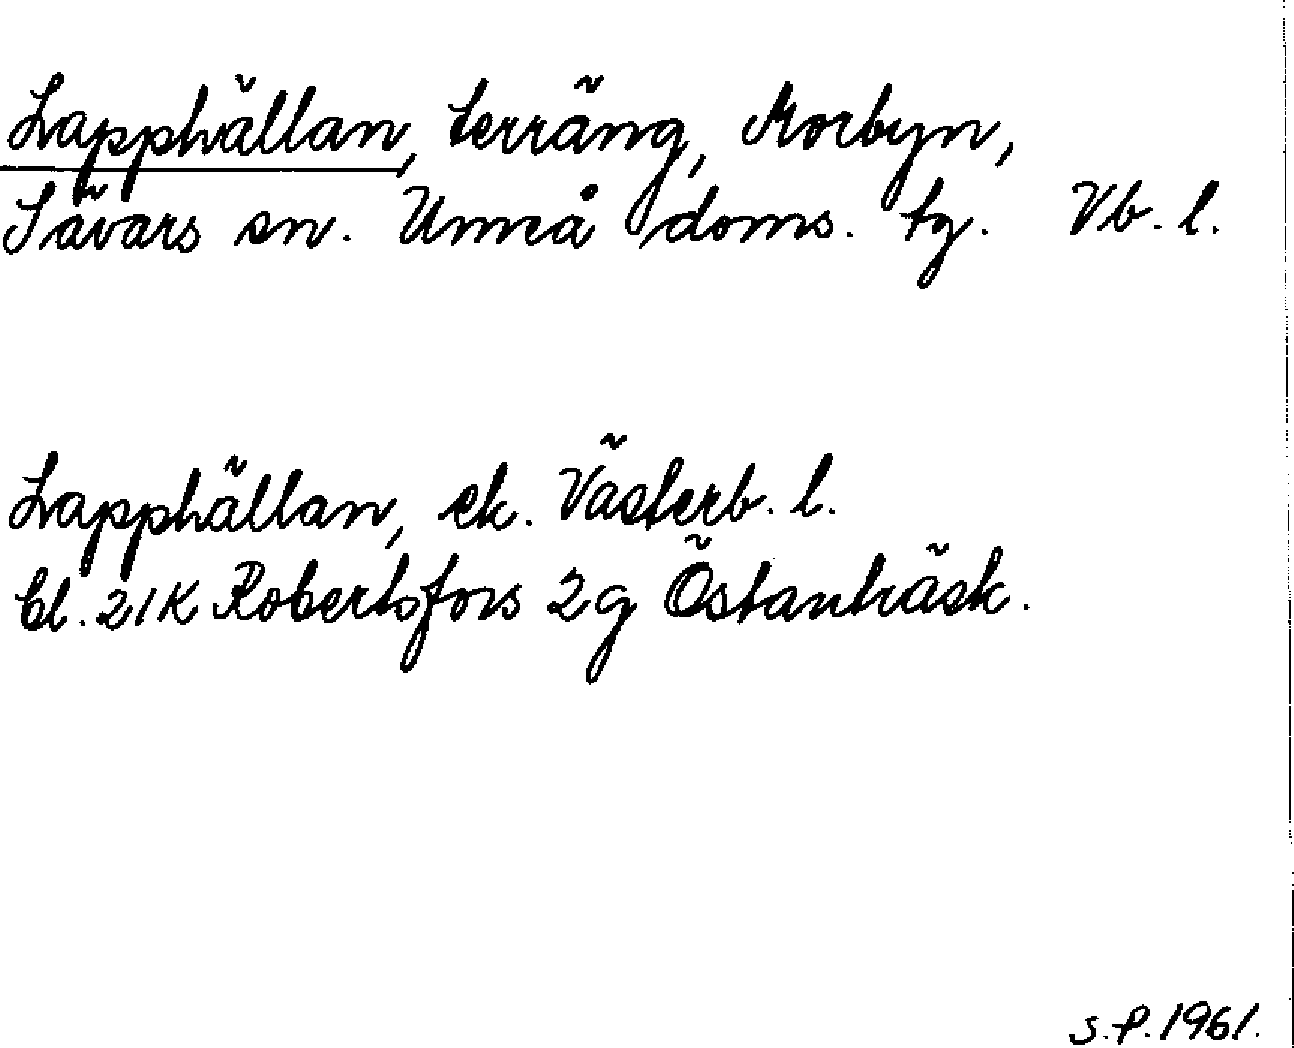 Lapphällan, terräng, Morbyn,
Sävars sn. Umeå doms. tg. Vb. l.
Lapphällan, ek. Västerb. l.
Bl. 21K Robertsfors 2g Östanträsk.
S.P. 1961.